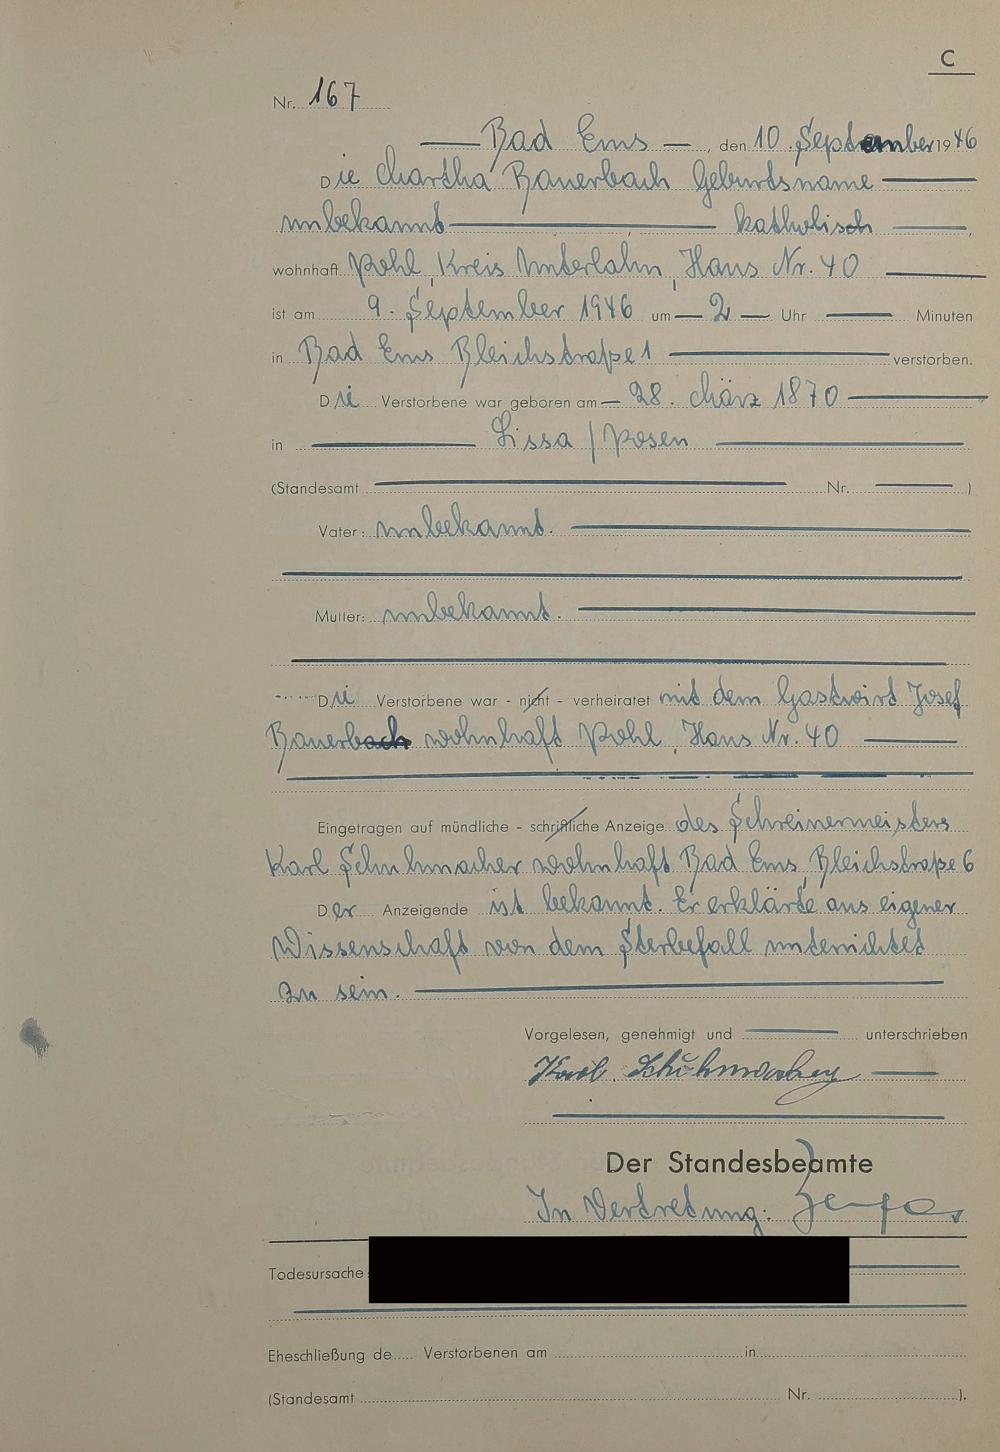 C
Nr. 167
Bad Ems, den 10. September 1946
Die Martha Bauerbach Geburtsname
unbekannt katholisch,
wohnhaft Pohl, Kreis Unterlahn, Haus Nr. 40
ist am 9. September 1946 um 2 Uhr Minuten
in Bad Ems Bleichstraße 1 verstorben.
Die Verstorbene war geboren am 28. März 1870
in Lissa / Posen
(Standesamt Nr. )
Vater: unbekannt.
Mutter: unbekannt.
Die Verstorbene war - nicht - verheiratet mit dem Gastwirt Josef
Bauerbach wohnhaft Pohl, Haus Nr. 40
Eingetragen auf mündliche - schriftliche Anzeige des Schreinermeisters
Karl Schuhmacher wohnhaft Bad Ems, Bleichstraße 6
Der Anzeigende ist bekannt. Er erklärte aus eigener
Wissenschaft von dem Sterbefall unterrichtet
zu sein.
Vorgelesen, genehmigt und unterschrieben
Karl Schuhmacher
Der Standesbeamte
In Vertretung:
Todesursache
Eheschließung de Verstorbenen am in
(Standesamt Nr. ).